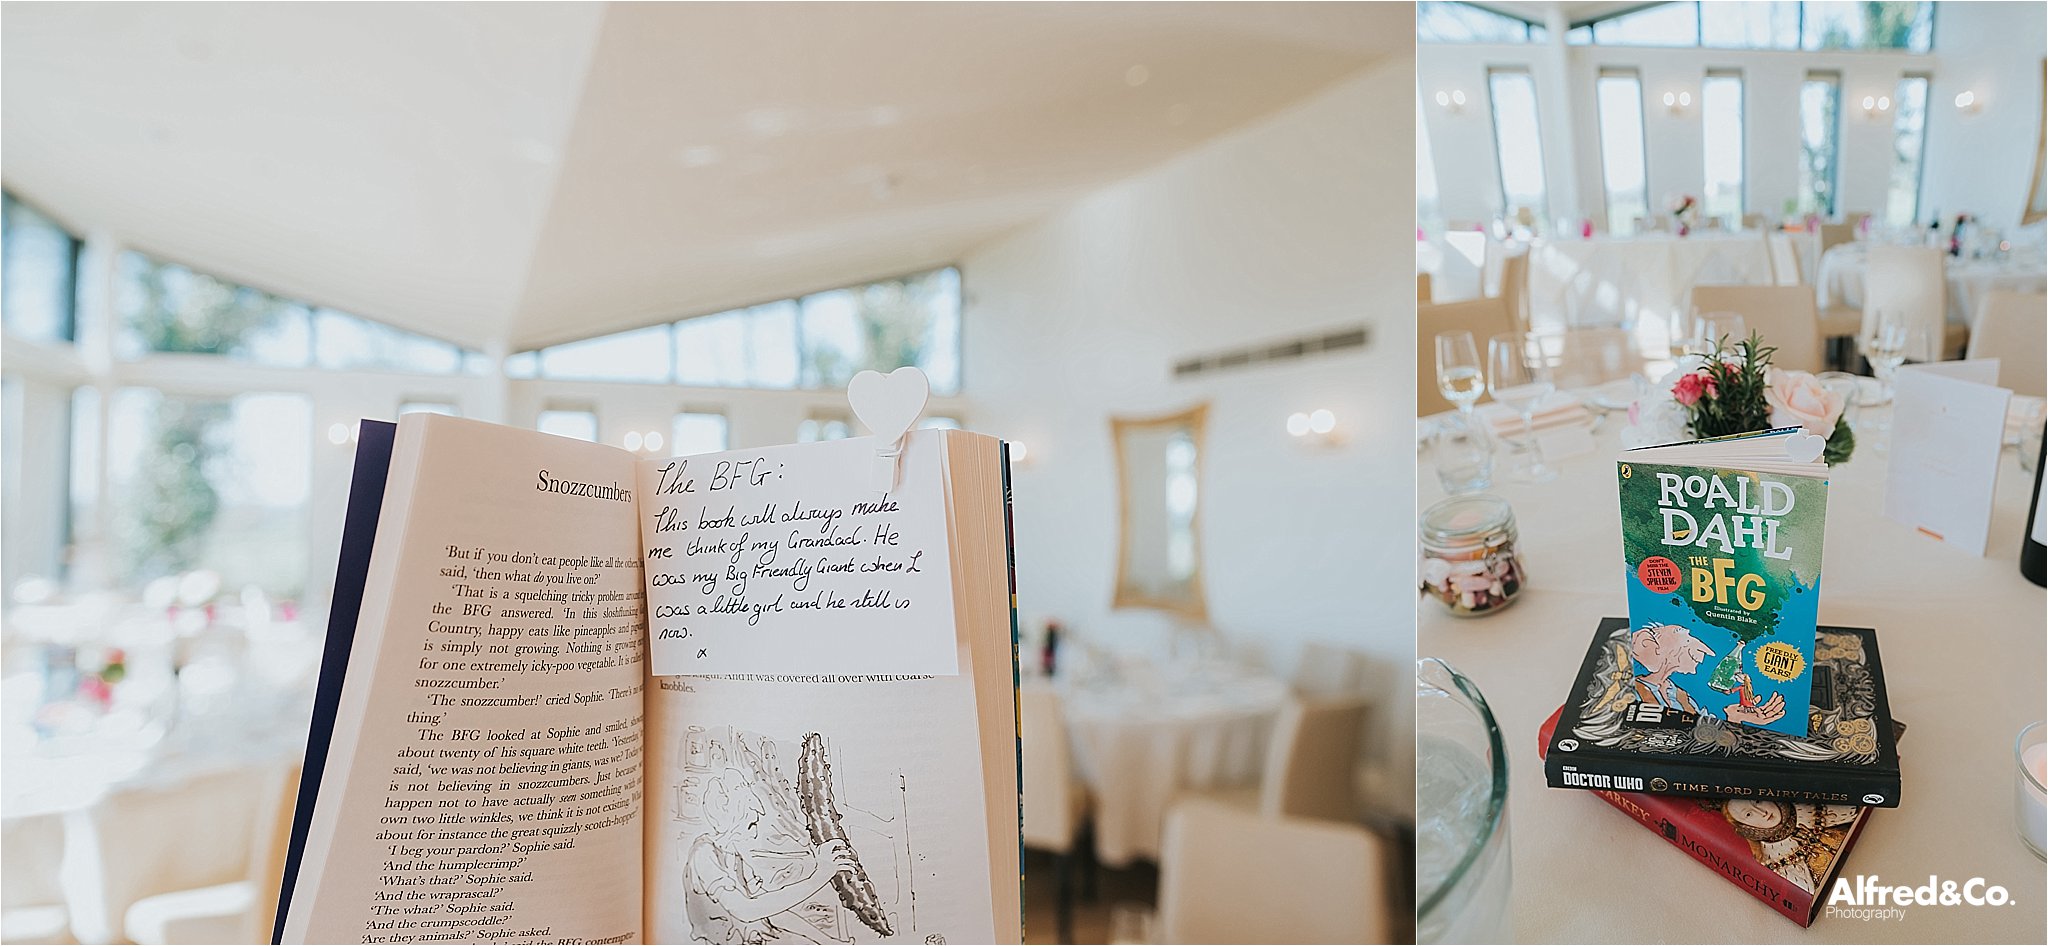 Snozzcumbers
'But if you don't eat people like all the others,'
said, 'then what do you live on?'
'That is a squelching tricky problem around
the BFG answered. 'In this sloshflunking
Country, happy eats like pineapples and
is simply not growing. Nothing is growing
for one extremely icky-poo vegetable. It is called
snozzcumber.'
'The snozzcumber!' cried Sophie. 'There's no
thing.'
The BFG looked at Sophie and smiled, showing
about twenty of his square white teeth. 'Yesterday,'
said, 'we was not believing in giants, was we? Today
is not believing in snozzcumbers. Just because
happen not to have actually seen something with
own two little winkles, we think it is not existing. What
about for instance the great squizzly scotch-hopper?'
'I beg your pardon?' Sophie said.
'And the humplecrimp?'
'What's that?' Sophie said.
'And the wraprascal?'
'The what?' Sophie said.
'And the crumpscoddle?'
'Are they animals?' Sophie asked.
said the BFG
The BFG:
This book will always make
me think of my Grandad. He
was my Big Friendly Giant when I
was a little girl and he still is
now.
x
length. And it was covered all over with coarse
knobbles.
ROALD
DAHL
DON'T
MISS THE
STEVEN
SPIELBERG
FILM
THE
BFG
Illustrated by
Quentin Blake
FREE DIY
GIANT
EARS!
BBC
DOCTOR WHO TIME LORD FAIRY TALES
MONARCHY
Alfred&Co.
Photography